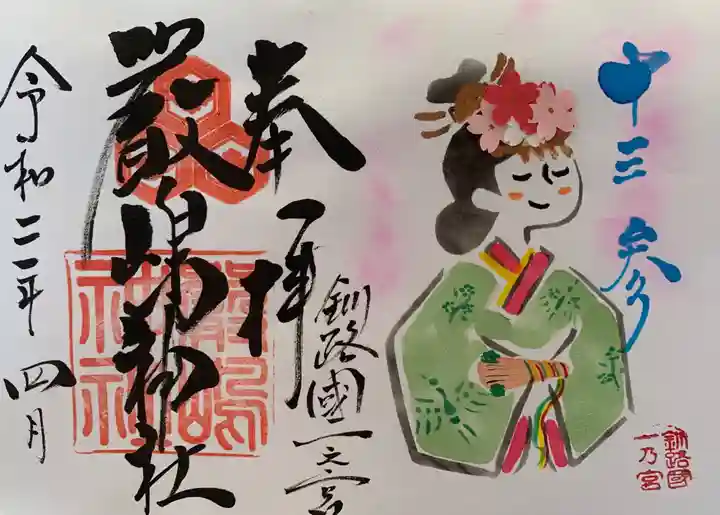 十三参
釧路國
一乃宮
奉拝
釧路國一之宮
厳嶋神社
厳嶋
神社
令和二年 四月